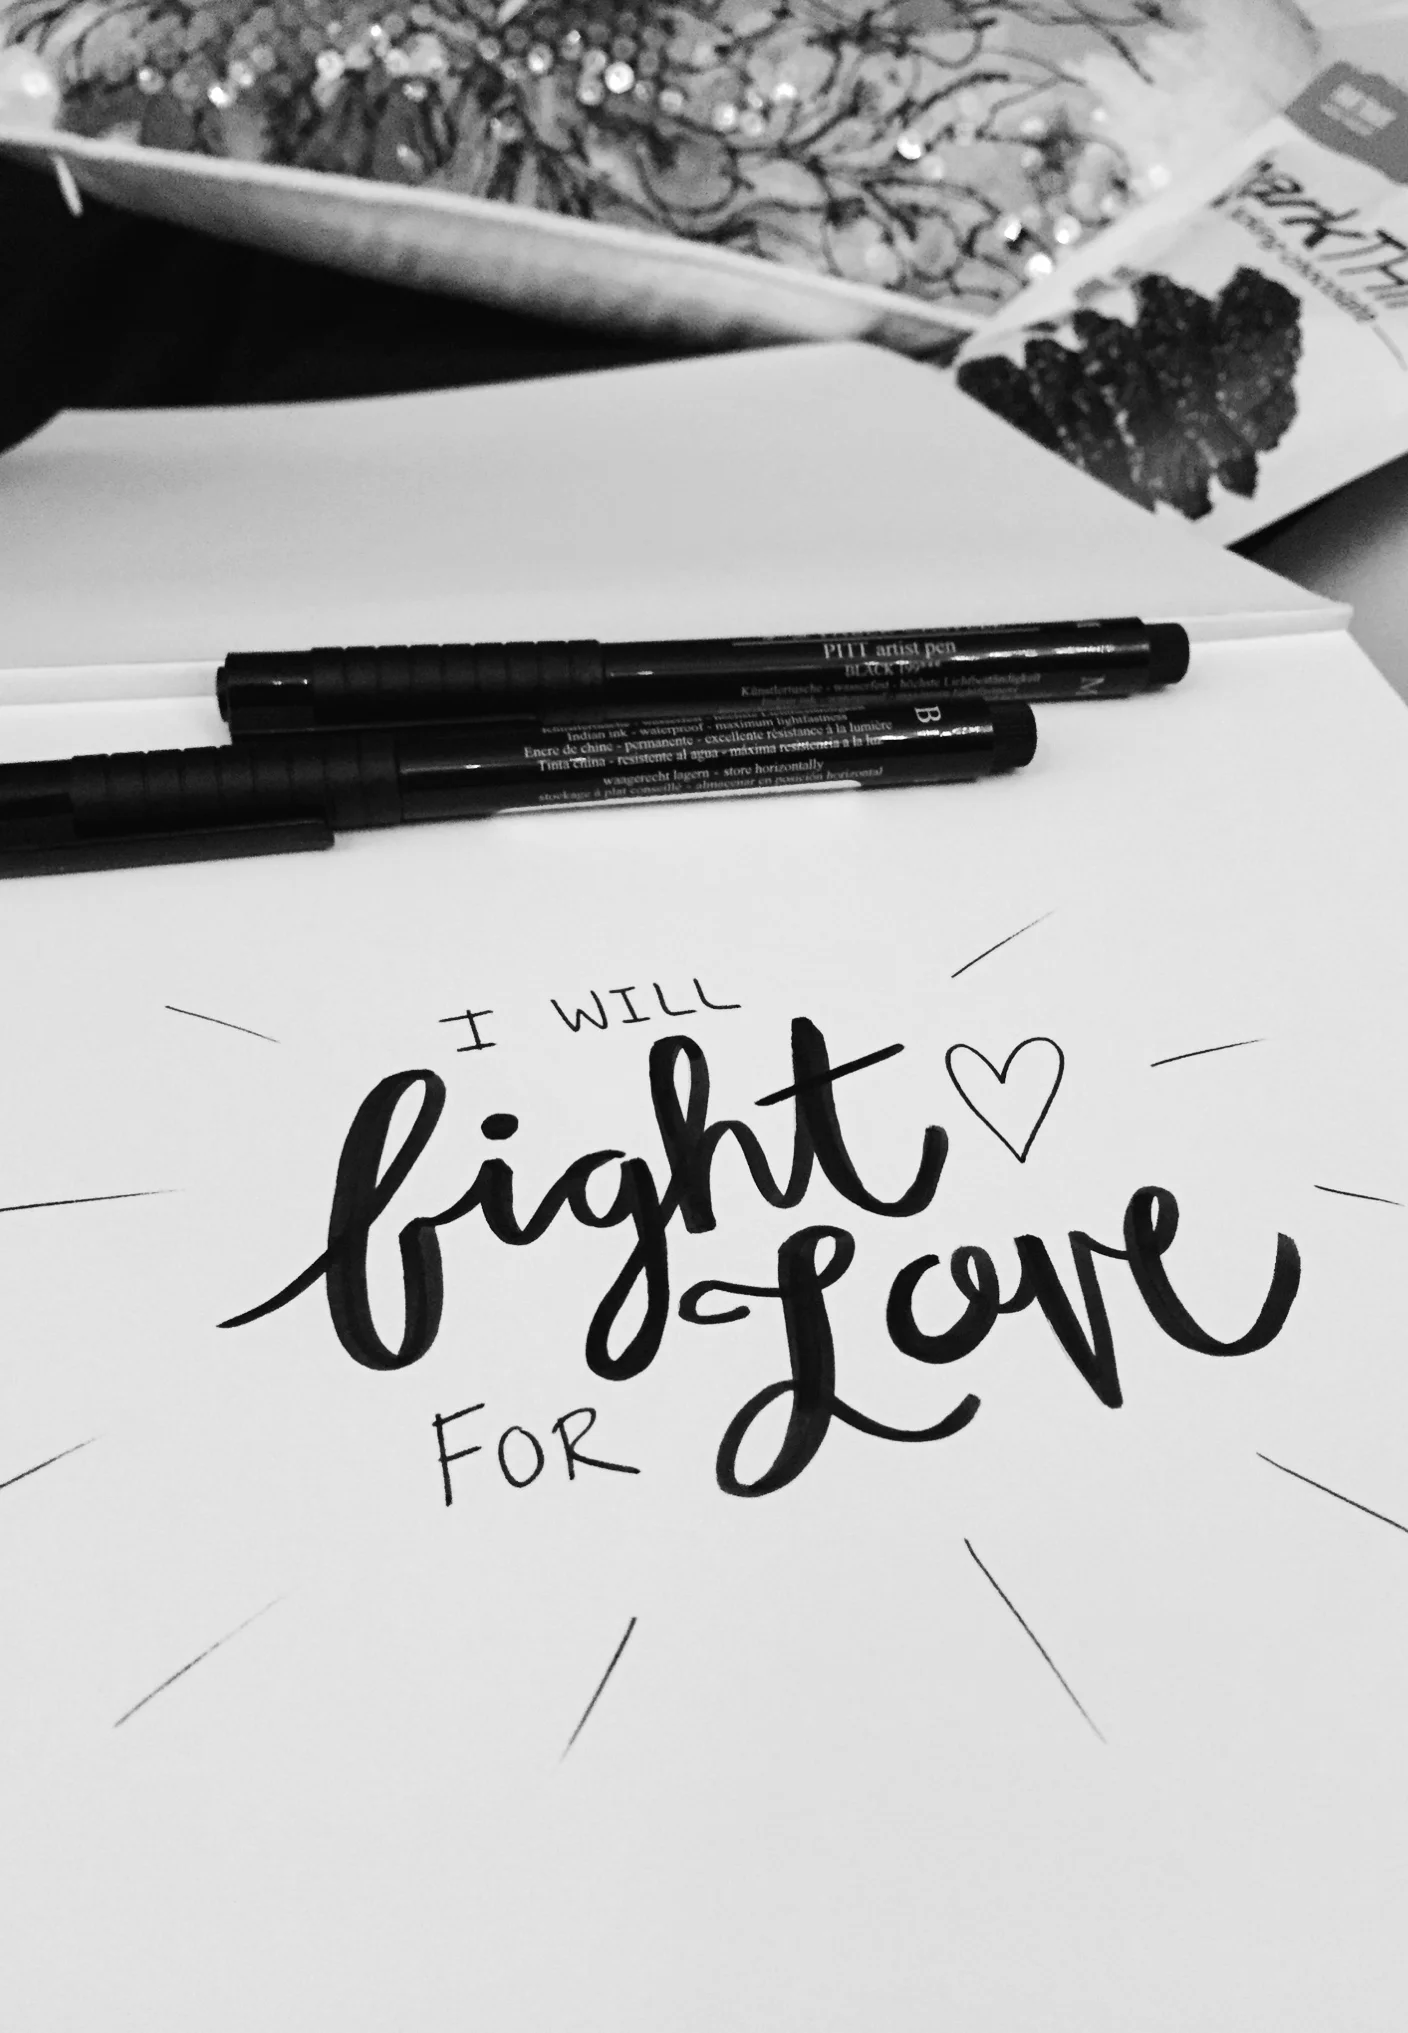 barkTHI
PITT artist pen
BLACK 199***
M
Künstlertusche - wasserfest - höchste Lichtbeständigkeit
B
Indian ink - waterproof - maximum lightfastness
Encre de chine - permanente - excellente résistance à la lumière
Tinta china - resistente al agua - máxima resistentia a la luz
waagerecht lagern - store horizontally
stockage à plat conseillé - almacenar en posición horizontal
I WILL
fight
Love
FOR